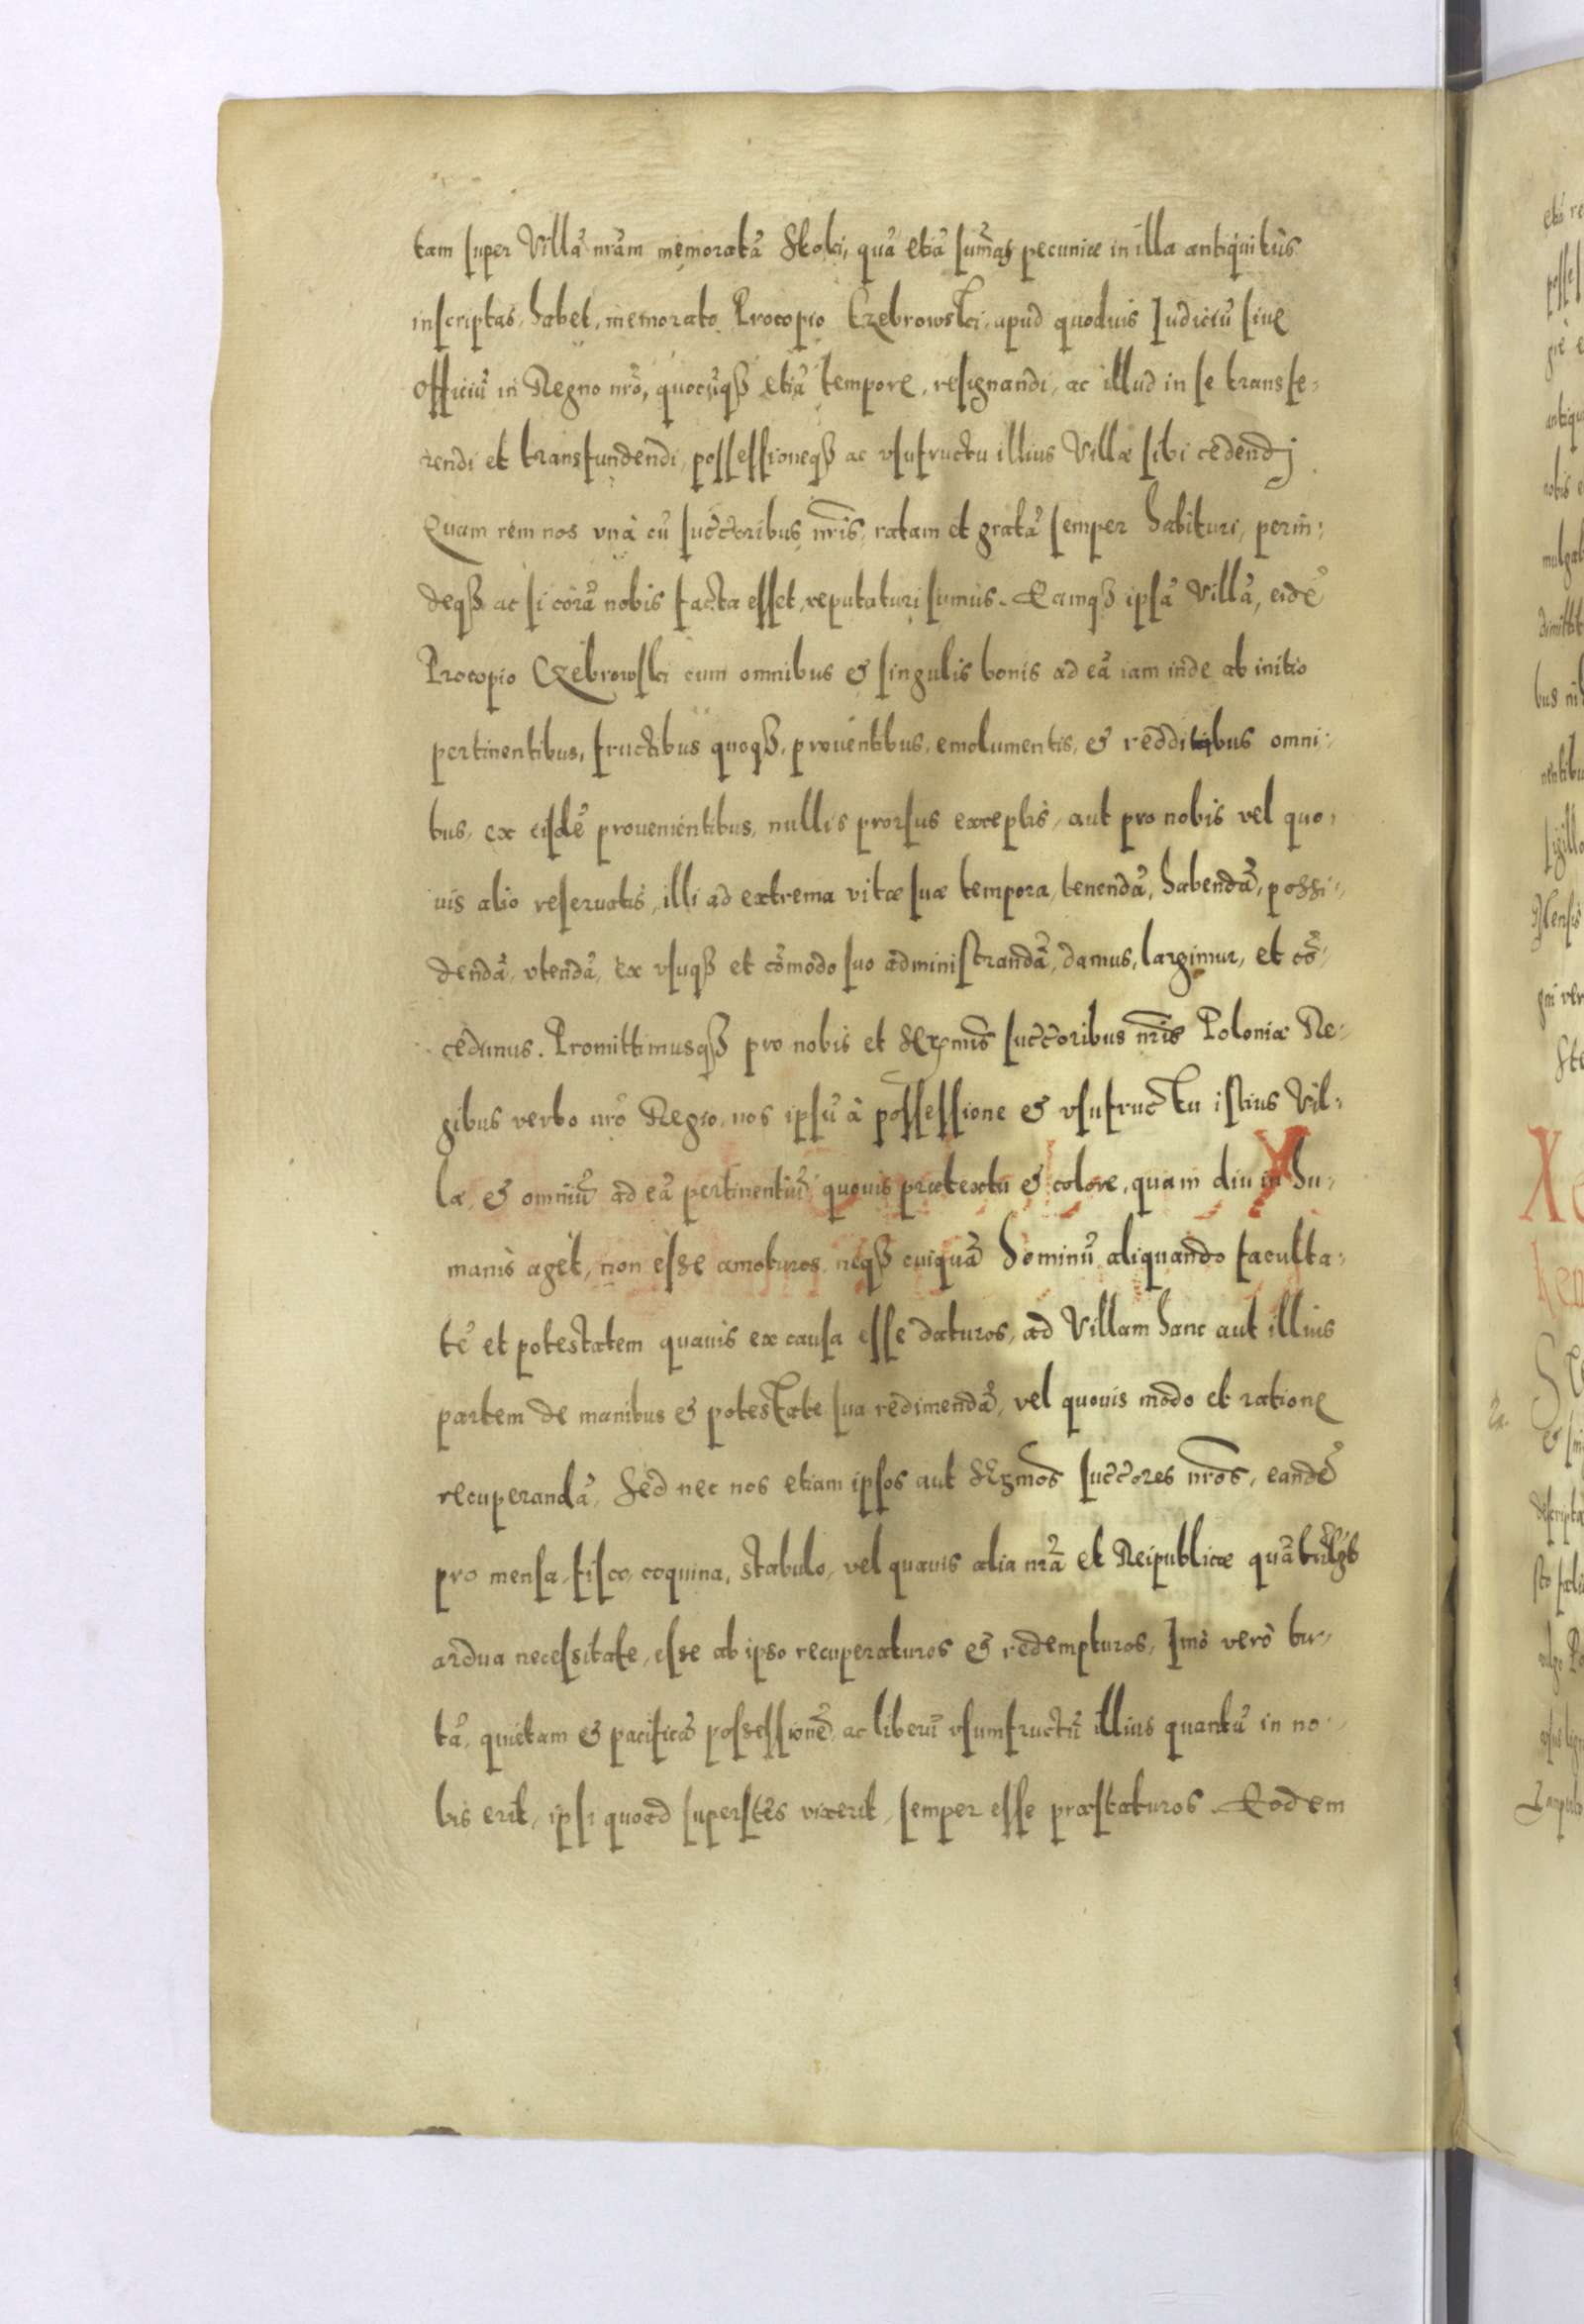 tam super Villã nrãm memoratã Skoki, quã etiã sum̃as pecuniæ in illa antiquitùs
inscriptas, habet, memorato Procopio Czebrowski, apud quoduis Iudiciũ siue
Officiũ in Regno nrõ, quocũqȝ etiã tempore, resignandi, ac illud in se transfe-
rendi et transfundendi, possessioneqȝ ac vsufructu illius Villæ sibi cedendj.
Quam rem nos vnà cũ succ̃oribus nr̃is, ratam et gratã semper habituri, perin-
deqȝ ac si corã nobis facta esset, reputaturi sumus. Eamqȝ ipsã Villã, eidẽ
Procopio Czebrowski cum omnibus & singulis bonis ad eã iam inde ab initio
pertinentibus, fructibus quoqȝ, prouentibus, emolumentis, & redditibus omni-
bus, ex eisdẽ prouenientibus, nullis prorsus exceptis, aut pro nobis vel quo-
uis alio reseruatis, illi ad extrema vitæ suæ tempora, tenendã, habendã, possi-
dendã, vtendã, ex vsuqȝ et cõmodo suo administrandã, damus, largimur, et cõ-
cedimus. Promittimusqȝ pro nobis et Serenmis̃ succ̃oribus nr̃is Poloniæ Re-
gibus verbo nrõ Regio, nos ipsũ à possessione & vsufructu istius Vil-
læ, & omniũ ad eã pertinentiũ, quouis prætextu & colore, quam diu in hu-
manis aget, non esse amoturos, neqȝ cuiquã hominũ aliquando faculta-
tẽ et potestatem quauis ex causa esse daturos, ad Villam hanc aut illius
partem de manibus & potestate sua redimendã, vel quouis modo et ratione
recuperandã, Sed nec nos etiam ipsos aut Sermos̃ succ̃ores nr̃os, eandẽ
pro mensa, fisco, coquina, stabulo, vel quauis alia nrã et Reipublicæ
ardua necessitate, esse ab ipso recuperaturos & redempturos, Imò verò tu-
tã, quietam & pacificã possessionẽ, ac liberũ vsumfructũ illius quantũ in no-
bis erit, ipsi quoad superstes vixerit, semper esse præstaturos. Eodem